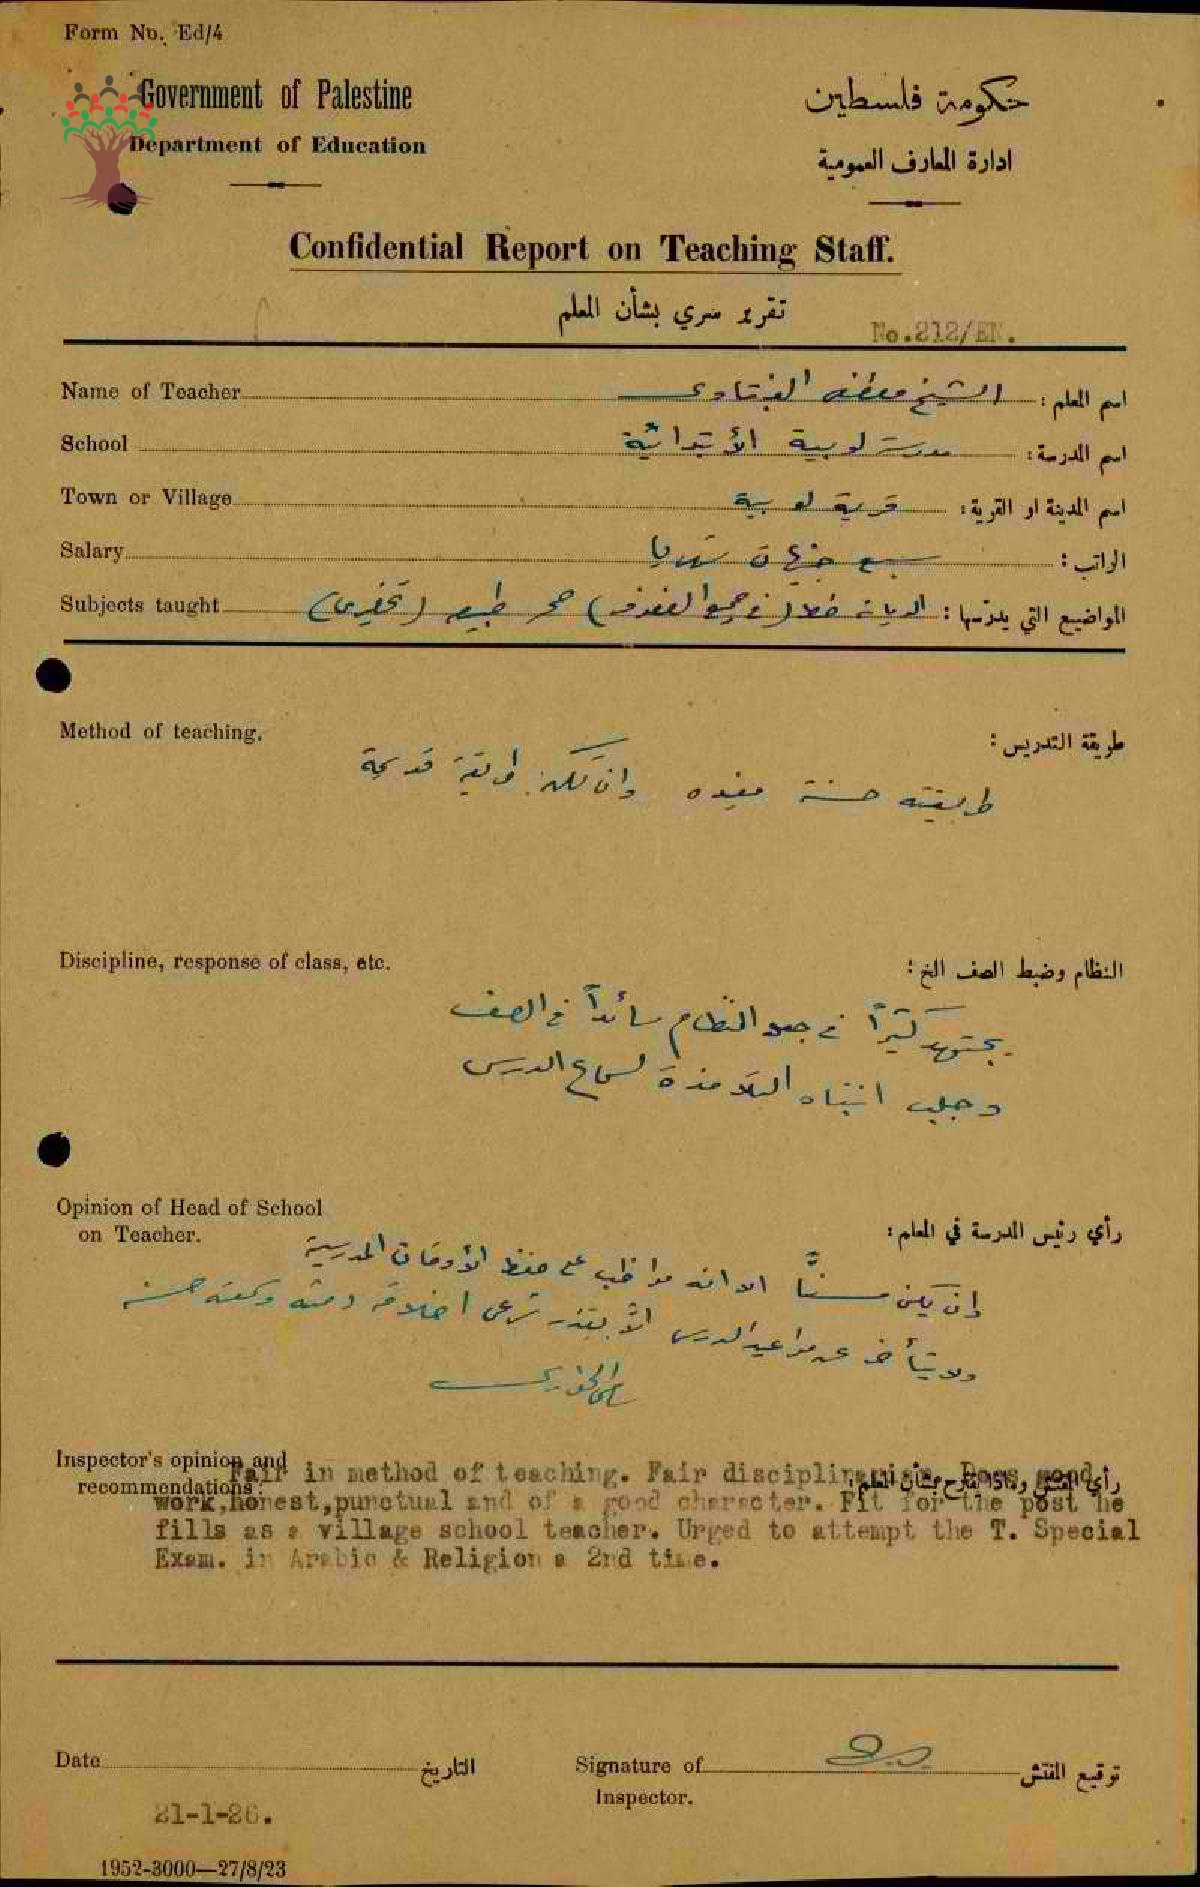 Form No. Ed/4
Government of Palestine
حكومة فلسطين
Department of Education
ادارة المعارف العمومية
Confidential Report on Teaching Staff.
تقرير سري بشأن المعلم
No.212/EN.
Name of Teacher الشيخ اسم المعلم:
School مدرسة لوبية الأبتدائية اسم المدرسة:
Town or Village قرية لوبية اسم المدينة او القرية:
Salary سبع جنيهات شهريا الراتب:
Subjects taught الديانة خط (في جميع الصفوف) المواضيع التي يدرسها:
Method of teaching. طريقة التدريس:
طريقته حسنة مفيده وان تكن طريقة قديمة
Discipline, response of class, etc. النظام وضبط الصف الخ:
يجتهد كثيراً في جعل النظام سائداً في الصف
وجلب انتباه التلامذة لسماع الدرس
Opinion of Head of School
on Teacher. رأي رئيس المدرسة في المعلم:
وان يكن مسناً الا انه مواظب على حفظ الأوقات المدرسية
ولا يتأخر عن مواعيد الدرس الا بعذر شرعي اخلاقه دمثه وسمعته حسنه
Inspector's opinion and
recommendations: رأي المفتش وماذا يقترح بشأن المعلم:
Fair in method of teaching. Fair disciplinarian. Does good
work,honest,punctual and of a good character. Fit for the post he
fills as a village school teacher. Urged to attempt the T. Special
Exam. in Arabic & Religion a 2nd time.
Date التاريخ Signature of توقيع المفتش
Inspector.
21-1-26.
1952-3000—27/8/23